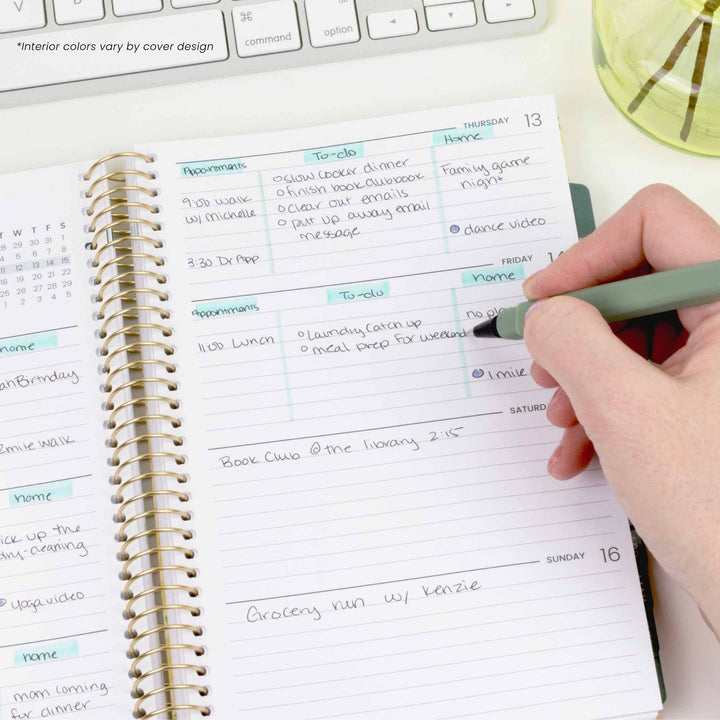 V
B
N
M
<
>
*Interior colors vary by cover design
⌘
command
option
◄
▼
►
T W T F S
28 29 30 31 1
5 6 7 8
11 12 13 14 15
19 20 21 22
25 26 27 28 1
4 5
home
Birthday
walk
home
pick up the
dry-cleaning
yoga video
home
mom coming
for dinner
THURSDAY 13
Appointments
9:00 walk
w/ michelle
3:30 Dr App
To-do
slow cooker dinner
finish book clubbook
clear out emails
put up away email
message
Home
Family game
night
dance video
FRIDAY
Appointments
11:00 Lunch
To-do
laundry catch up
meal prep for weekend
home
no
1 mile
Book Club @ the library 2:15
SUNDAY 16
Grocery run w/ Kenzie